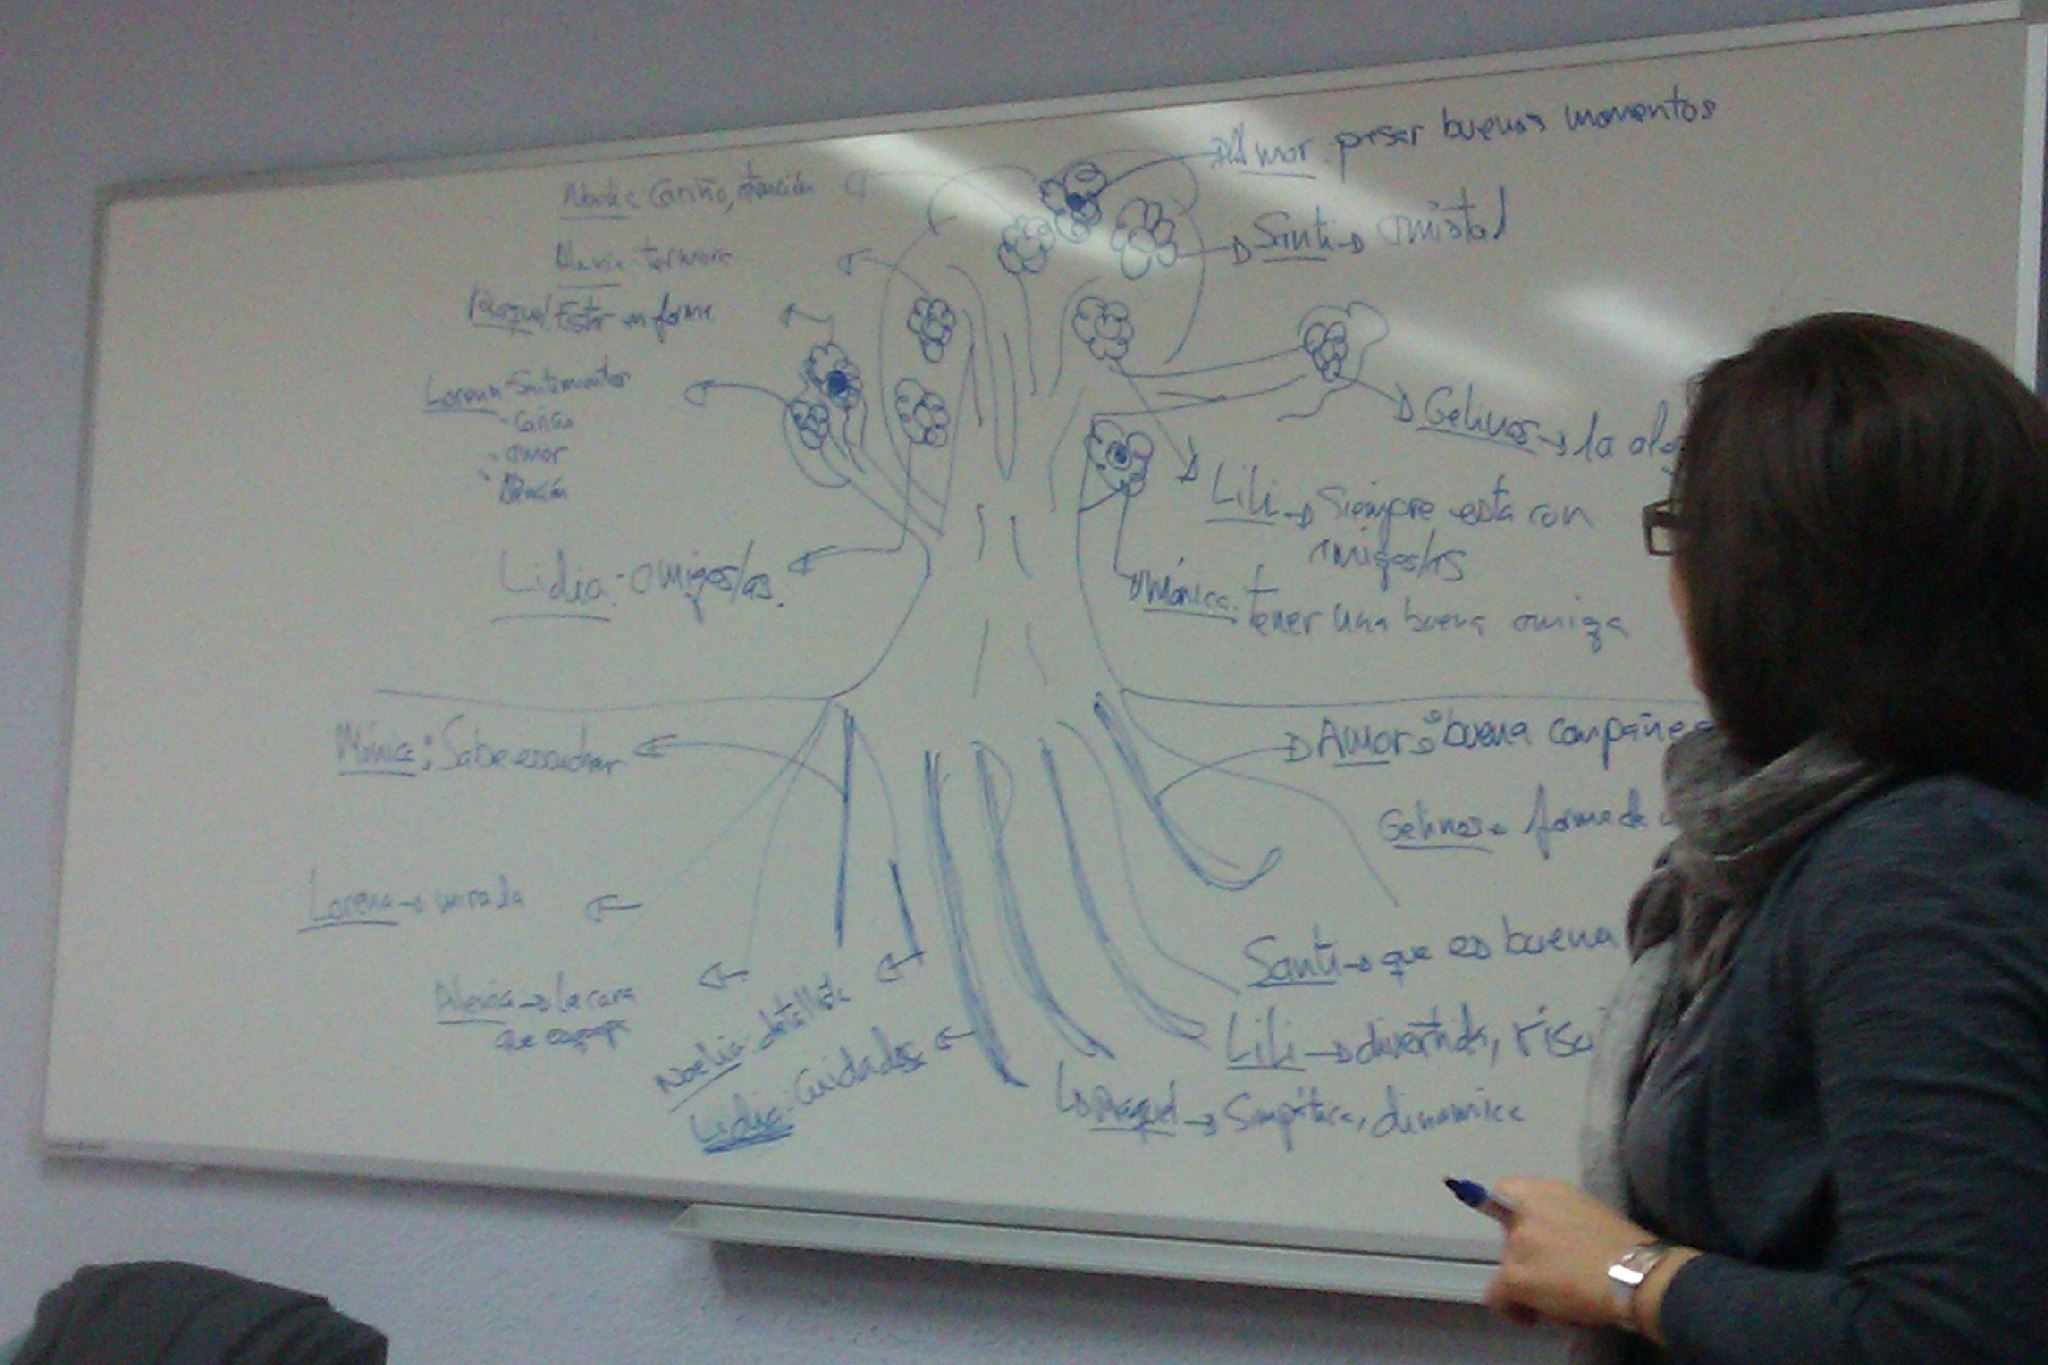 Amor: pasar buenos momentos
Noelia: Cariño, atención
Santi → amistad
Alexia: ternura
Raquel: Estar en forma
Lorena: Sentimientos
- Cariño
- amor
- Atención
Gelinos → la
Lili → Siempre esta con
amigos/as
Lidia: amigos/as.
Mónica: tener una buena amiga
Mónica: Sabe escuchar
Amor: buena
Gelinos forma de
Lorena → mirada
Santi → que es buena
Alexia → la cara
que
Noelia: detallista
Lili → divertida,
Lidia: Cuidados
Raquel → Simpática, dinamica